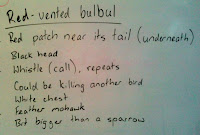 Red-vented bulbul
Red patch near its tail (underneath)
Black head
Whistle (call), repeats
Could be killing another bird
White chest
Feather mohawk
Bit bigger than a sparrow